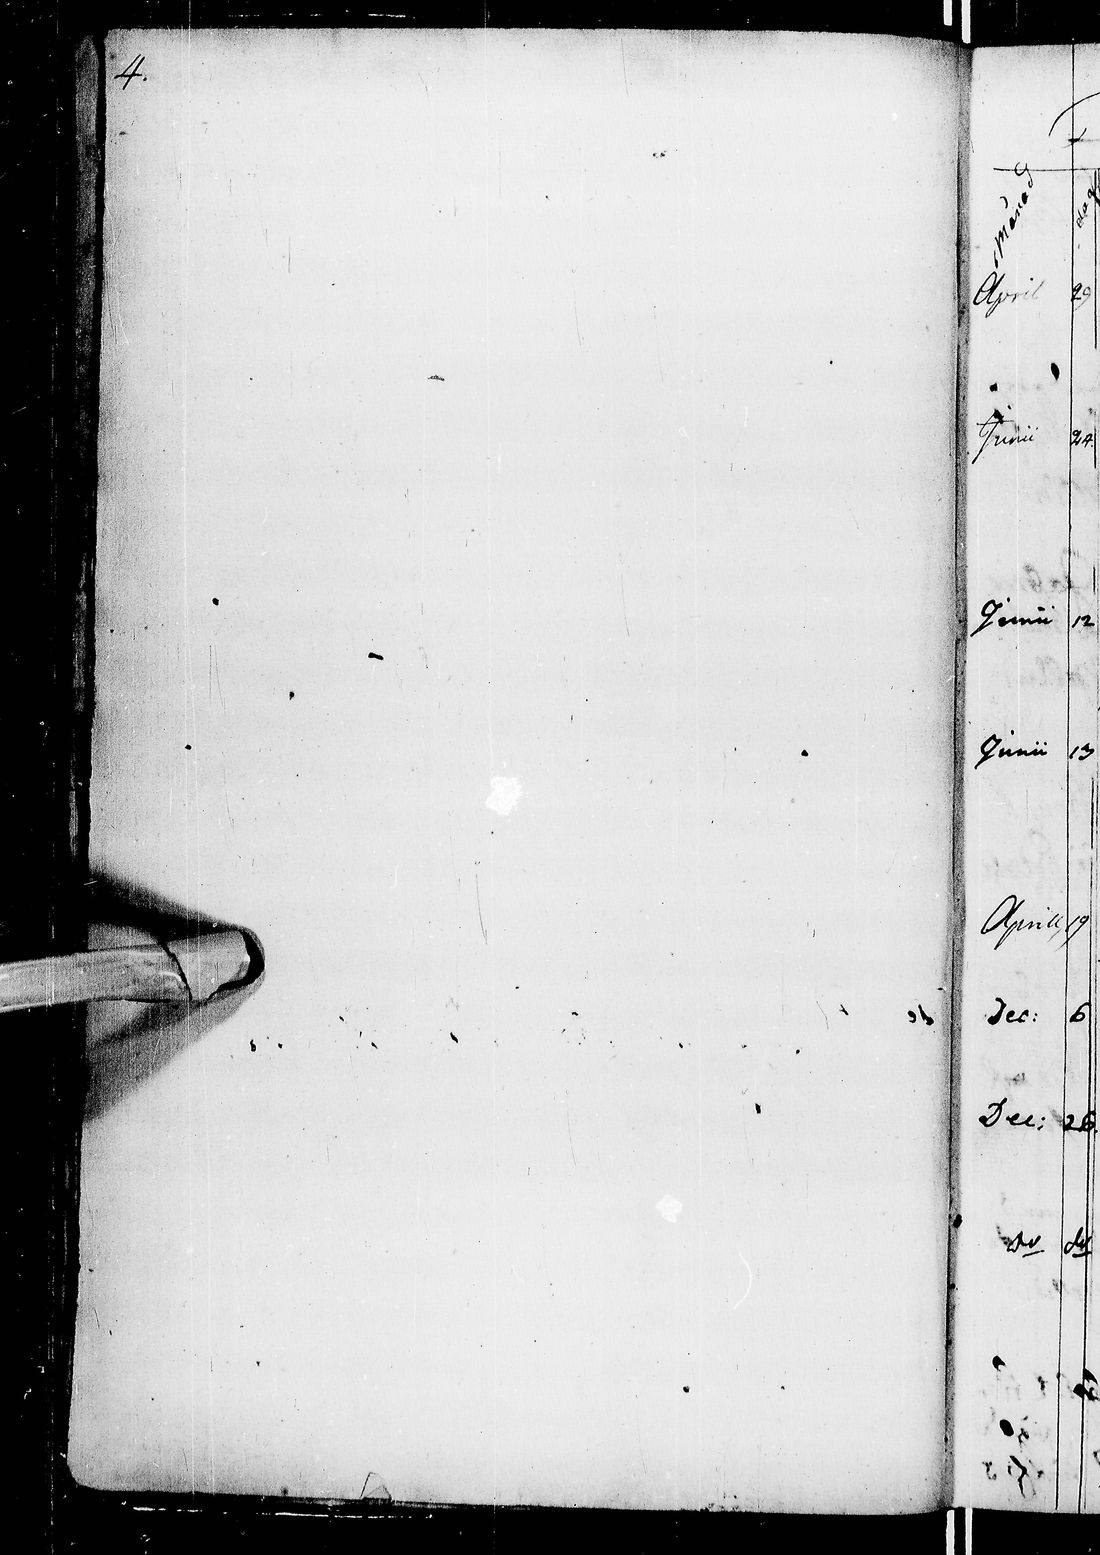 4.
Månad dag
April 29
Junii 24.
Junii 12
Junii 13
Aprill, 19
Dec: 6
Dec: 26.
do do